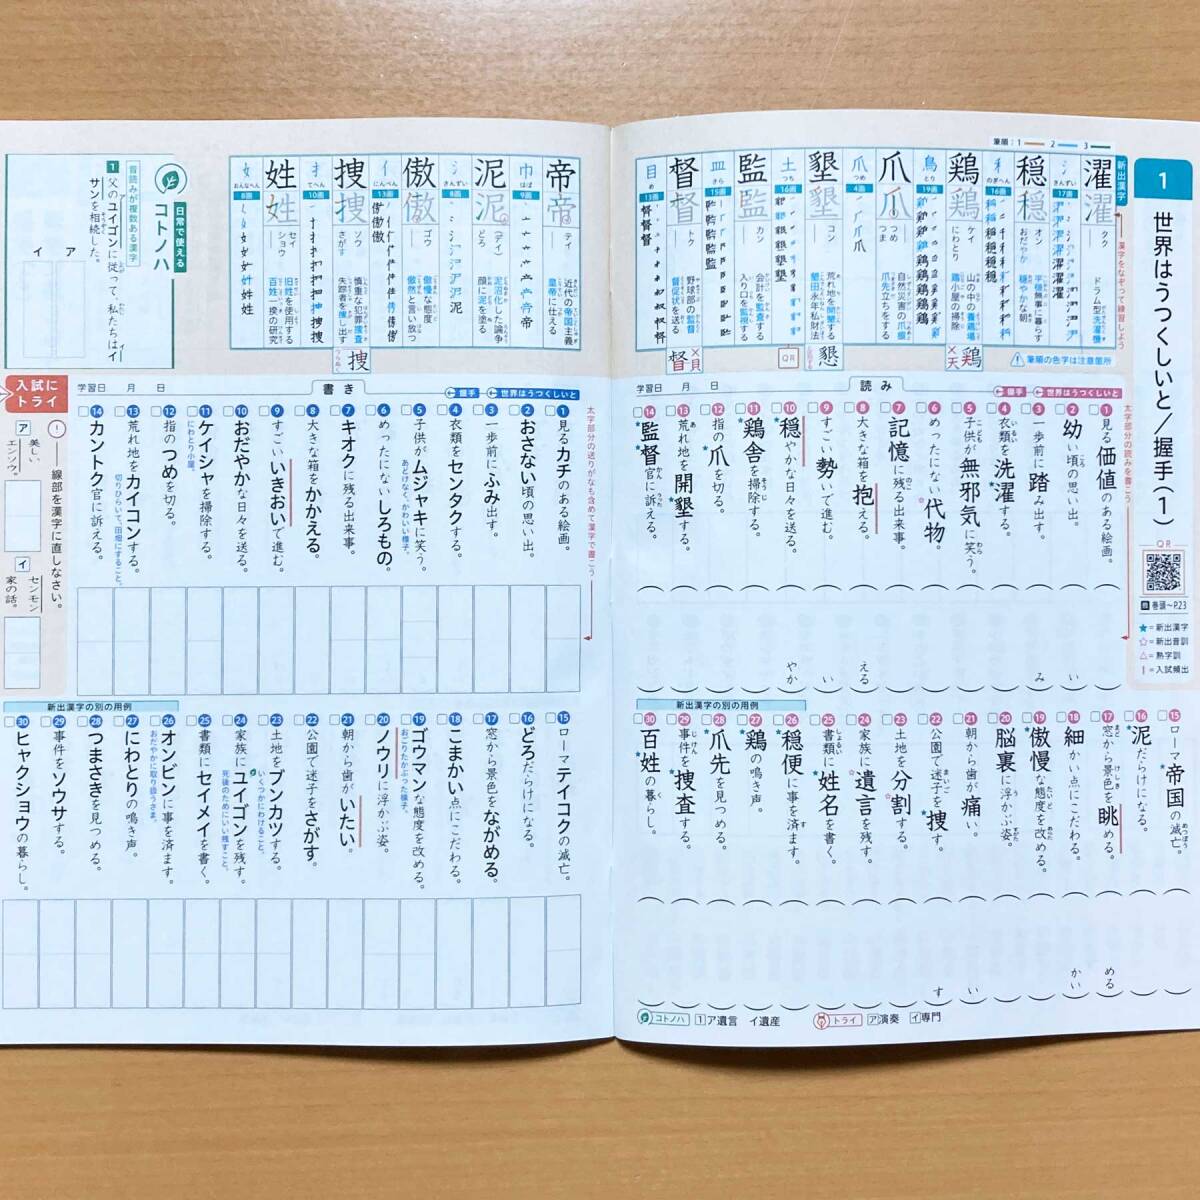 1
世界はうつくしいと/握手(1)
QR
巻頭〜P.23
★=新出漢字
☆=新出音訓
△=熟字訓
!=入試頻出
筆順:1 2 3
新出漢字
漢字をなぞって練習しよう
濯
タク
ドラム型洗濯機
17画
穏
オン
おだやか
平穏無事に暮らす
穏やかな朝
のぎへん
16画
鶏
ケイ
にわとり
山の中の養鶏場
鶏小屋の掃除
とり
19画
爪
つめ
つま
自然災害の爪痕
爪先立ちをする
つめ
4画
墾
コン
荒れ地を開墾する
墾田永年私財法
つち
16画
監
カン
会計を監査する
入り口を監視する
さら
15画
督
トク
野球部の監督
督促状を送る
め
13画
帝
テイ
近代の帝国主義
皇帝に仕える
はば
9画
泥
(デイ)
どろ
泥沼化した論争
顔に泥を塗る
さんずい
8画
傲
ゴウ
傲慢な態度
傲然と言い放つ
にんべん
13画
捜
ソウ
さがす
慎重な犯罪捜査
失踪者を捜し出す
てへん
10画
姓
セイ
ショウ
旧姓を使用する
百姓一揆の研究
おんなへん
8画
筆順の色字は注意箇所
学習日 月 日
読み
握手
世界はうつくしいと
太字部分の読みを書こう
1 見る価値のある絵画。
2 幼い頃の思い出。
い
3 一歩前に踏み出す。
み
4 衣類を洗濯する。
5 子供が無邪気に笑う。
6 めったにない代物。
7 記憶に残る出来事。
8 大きな箱を抱える。
える
9 すごい勢いで進む。
い
10 穏やかな日々を送る。
やか
11 鶏舎を掃除する。
12 指の爪を切る。
13 荒れ地を開墾する。
14 監督官に訴える。
15 ローマ帝国の滅亡。
16 泥だらけになる。
17 窓から景色を眺める。
める
18 細かい点にこだわる。
かい
19 傲慢な態度を改める。
20 脳裏に浮かぶ姿。
21 朝から歯が痛い。
い
22 公園で迷子を捜す。
す
23 土地を分割する。
24 家族に遺言を残す。
25 書類に姓名を書く。
新出漢字の別の用例
26 穏便に事を済ます。
27 鶏の鳴き声。
28 爪先を見つめる。
29 事件を捜査する。
30 百姓の暮らし。
コトノハ 1 ア遺言 イ遺産
トライ ア演奏 イ専門
学習日 月 日
書き
握手
世界はうつくしいと
太字部分の送りがなも含めて漢字で書こう
1 見るカチのある絵画。
2 おさない頃の思い出。
3 一歩前にふみ出す。
4 衣類をセンタクする。
5 子供がムジャキに笑う。
あどけなく、かわいい様子。
6 めったにないしろもの。
7 キオクに残る出来事。
8 大きな箱をかかえる。
9 すごいいきおいで進む。
10 おだやかな日々を送る。
11 ケイシャを掃除する。
にわとり小屋。
12 指のつめを切る。
13 荒れ地をカイコンする。
切りひらいて、田畑にすること。
14 カントク官に訴える。
15 ローマテイコクの滅亡。
16 どろだらけになる。
17 窓から景色をながめる。
18 こまかい点にこだわる。
19 ゴウマンな態度を改める。
おごりたかぶった様子。
20 ノウリに浮かぶ姿。
21 朝から歯がいたい。
22 公園で迷子をさがす。
23 土地をブンカツする。
いくつかにわけること。
24 家族にユイゴンを残す。
死後のためにいい残すこと。
25 書類にセイメイを書く。
新出漢字の別の用例
26 オンビンに事を済ます。
おだやかに取り扱うさま。
27 にわとりの鳴き声。
28 つまさきを見つめる。
29 事件をソウサする。
30 ヒャクショウの暮らし。
日常で使える
コトノハ
音読みが複数ある漢字
1 父のユイゴンに従って、私たちはイサンを相続した。
ア
イ
入試にトライ
!――線部を漢字に直しなさい。
ア 美しいエンソウ。
イ センモン家の話。